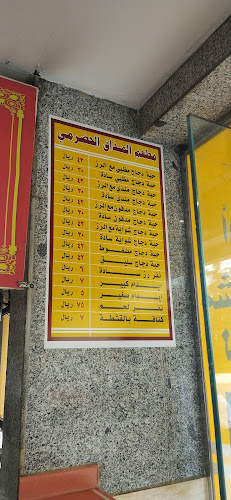 مطعم المذاق الحضرمي
حبة دجاج مظبي مع الرز ٤٢ ريال
حبة دجاج مظبي سادة ٣٠ ريال
حبة دجاج مندي مع الرز ٤٢ ريال
حبة دجاج مندي سادة ٣٠ ريال
حبة دجاج مدفون مع الرز ٤٢ ريال
حبة دجاج مدفون سادة ٣٠ ريال
حبة دجاج شواية مع الرز ٤٢ ريال
حبة دجاج شواية سادة ٣٠ ريال
حبة دجاج مضغوط ٤٢ ريال
حبة دجاج سليق ٤٢ ريال
نفر رز سادة ٦ ريال
إيدام كبير ٧ ريال
إيدام صغير ٥ ريال
نفر لحم ٧٥ ريال
كنافة بالقشطة ٧ ريال